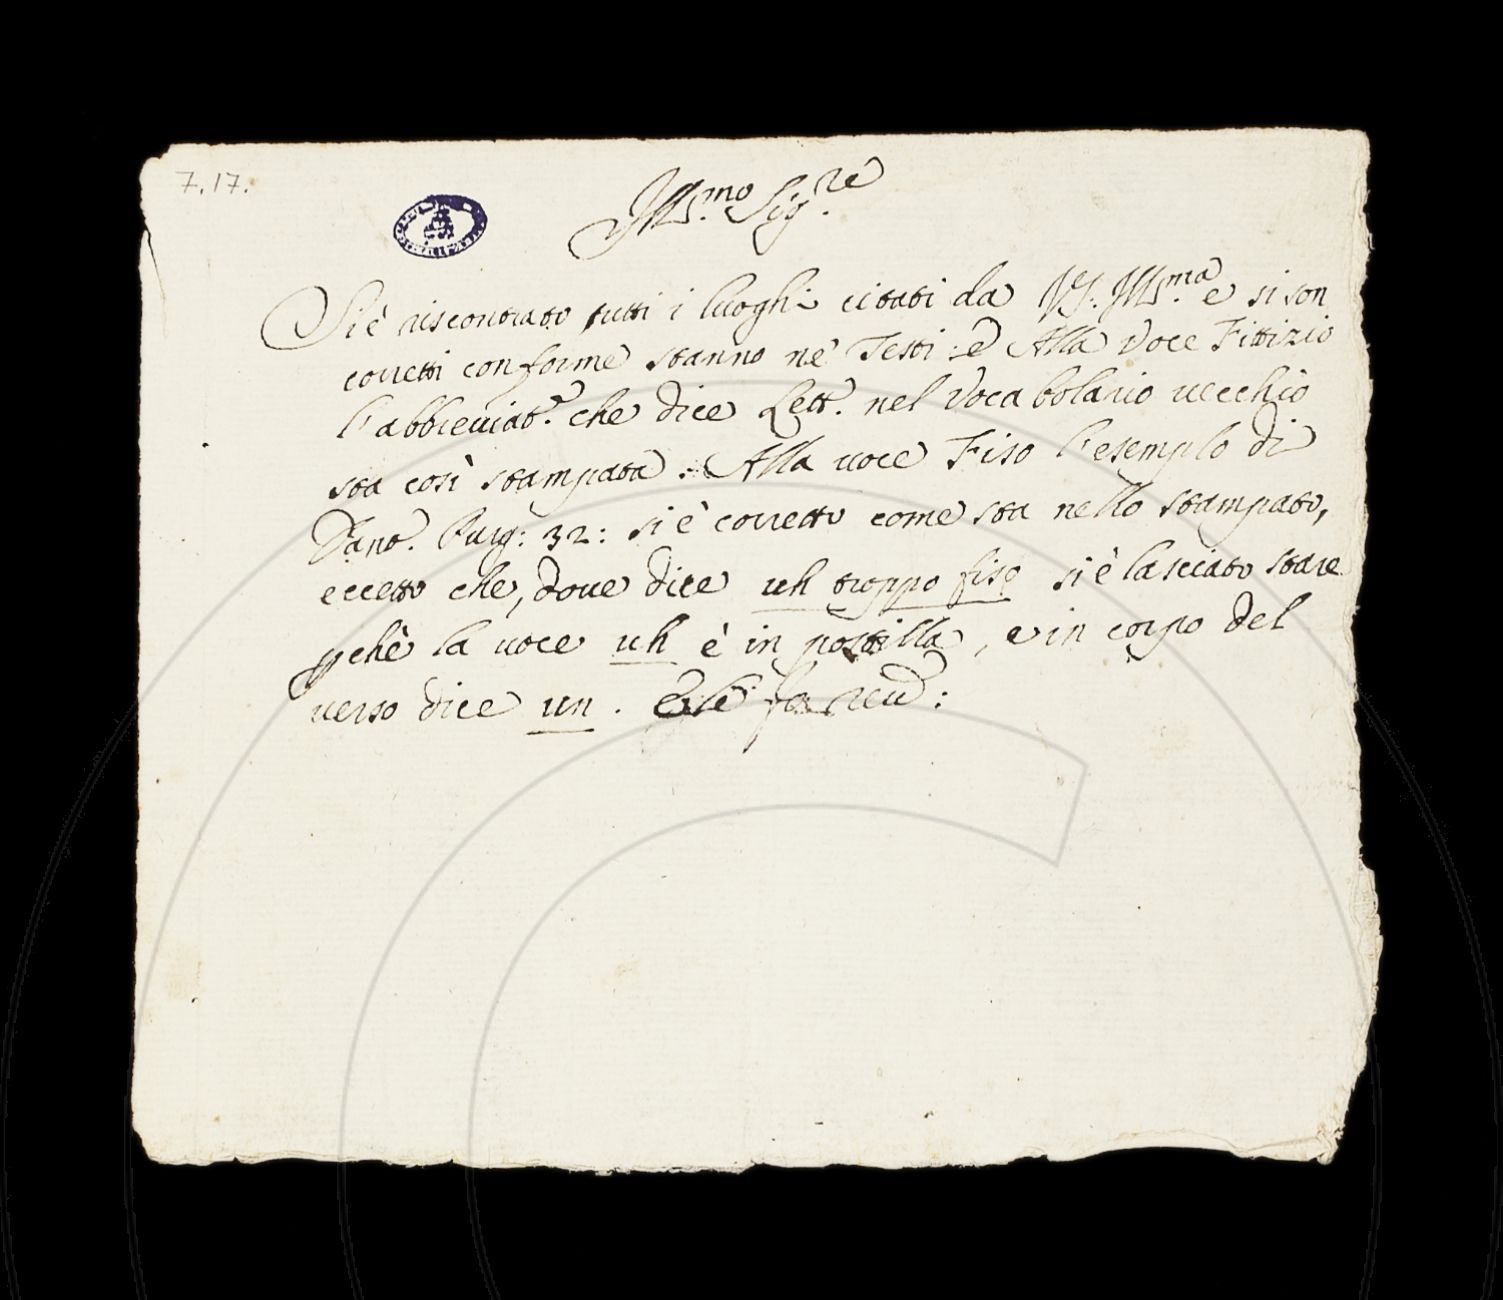 7.17.
Ill.mo Sig.re
Si è riscontrato tutti i luoghi citati da VS. Ill.ma e si son
corretti conforme stanno ne' Testi: e Alla Voce Fittizio
l'abbreviat.e che dice Lett. nel Vocabolario vecchio
sta così stampata. Alla voce Fiso l'esemplo di
Dant. Purg: 32: si è corretto come sta nello stampato,
eccetto che, dove dice uh troppo fiso si è lasciato stare
pchè la voce uh è in postilla, e in corpo del
verso dice un. E le fo reu: